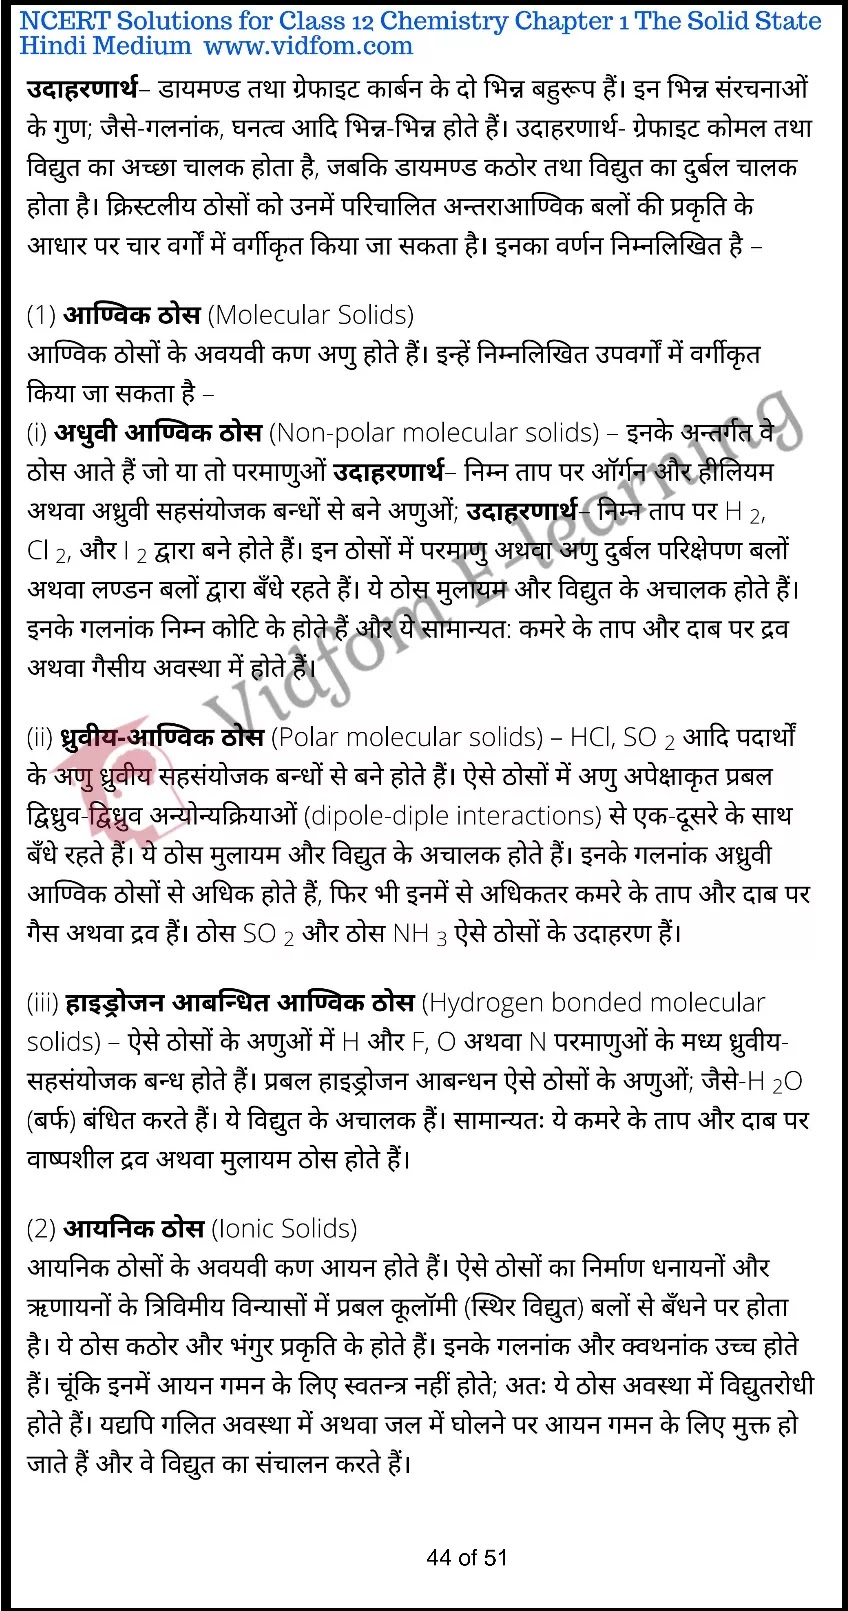 NCERT Solutions for Class 12 Chemistry Chapter 1 The Solid State
Hindi Medium www.vidfom.com
उदाहरणार्थ– डायमण्ड तथा ग्रेफाइट कार्बन के दो भिन्न बहुरूप हैं। इन भिन्न संरचनाओं
के गुण; जैसे-गलनांक, घनत्व आदि भिन्न-भिन्न होते हैं। उदाहरणार्थ- ग्रेफाइट कोमल तथा
विद्युत का अच्छा चालक होता है, जबकि डायमण्ड कठोर तथा विद्युत का दुर्बल चालक
होता है। क्रिस्टलीय ठोसों को उनमें परिचालित अन्तराआण्विक बलों की प्रकृति के
आधार पर चार वर्गों में वर्गीकृत किया जा सकता है। इनका वर्णन निम्नलिखित है –
(1) आण्विक ठोस (Molecular Solids)
आण्विक ठोसों के अवयवी कण अणु होते हैं। इन्हें निम्नलिखित उपवर्गों में वर्गीकृत
किया जा सकता है –
(i) अधुवी आण्विक ठोस (Non-polar molecular solids) – इनके अन्तर्गत वे
ठोस आते हैं जो या तो परमाणुओं उदाहरणार्थ– निम्न ताप पर ऑर्गन और हीलियम
अथवा अध्रुवी सहसंयोजक बन्धों से बने अणुओं; उदाहरणार्थ– निम्न ताप पर H 2,
Cl 2, और I 2 द्वारा बने होते हैं। इन ठोसों में परमाणु अथवा अणु दुर्बल परिक्षेपण बलों
अथवा लण्डन बलों द्वारा बँधे रहते हैं। ये ठोस मुलायम और विद्युत के अचालक होते हैं।
इनके गलनांक निम्न कोटि के होते हैं और ये सामान्यत: कमरे के ताप और दाब पर द्रव
अथवा गैसीय अवस्था में होते हैं।
Vidfom E-learning
(ii) ध्रुवीय-आण्विक ठोस (Polar molecular solids) – HCl, SO 2 आदि पदार्थों
के अणु ध्रुवीय सहसंयोजक बन्धों से बने होते हैं। ऐसे ठोसों में अणु अपेक्षाकृत प्रबल
द्विध्रुव-द्विध्रुव अन्योन्यक्रियाओं (dipole-diple interactions) से एक-दूसरे के साथ
बँधे रहते हैं। ये ठोस मुलायम और विद्युत के अचालक होते हैं। इनके गलनांक अध्रुवी
आण्विक ठोसों से अधिक होते हैं, फिर भी इनमें से अधिकतर कमरे के ताप और दाब पर
गैस अथवा द्रव हैं। ठोस SO 2 और ठोस NH 3 ऐसे ठोसों के उदाहरण हैं।
(iii) हाइड्रोजन आबन्धित आण्विक ठोस (Hydrogen bonded molecular
solids) – ऐसे ठोसों के अणुओं में H और F, O अथवा N परमाणुओं के मध्य ध्रुवीय-
सहसंयोजक बन्ध होते हैं। प्रबल हाइड्रोजन आबन्धन ऐसे ठोसों के अणुओं; जैसे-H 2O
(बर्फ) बंधित करते हैं। ये विद्युत के अचालक हैं। सामान्यतः ये कमरे के ताप और दाब पर
वाष्पशील द्रव अथवा मुलायम ठोस होते हैं।
(2) आयनिक ठोस (Ionic Solids)
आयनिक ठोसों के अवयवी कण आयन होते हैं। ऐसे ठोसों का निर्माण धनायनों और
ऋणायनों के त्रिविमीय विन्यासों में प्रबल कूलॉमी (स्थिर विद्युत) बलों से बँधने पर होता
है। ये ठोस कठोर और भंगुर प्रकृति के होते हैं। इनके गलनांक और क्वथनांक उच्च होते
हैं। चूंकि इनमें आयन गमन के लिए स्वतन्त्र नहीं होते; अतः ये ठोस अवस्था में विद्युतरोधी
होते हैं। यद्यपि गलित अवस्था में अथवा जल में घोलने पर आयन गमन के लिए मुक्त हो
जाते हैं और वे विद्युत का संचालन करते हैं।
44 of 51